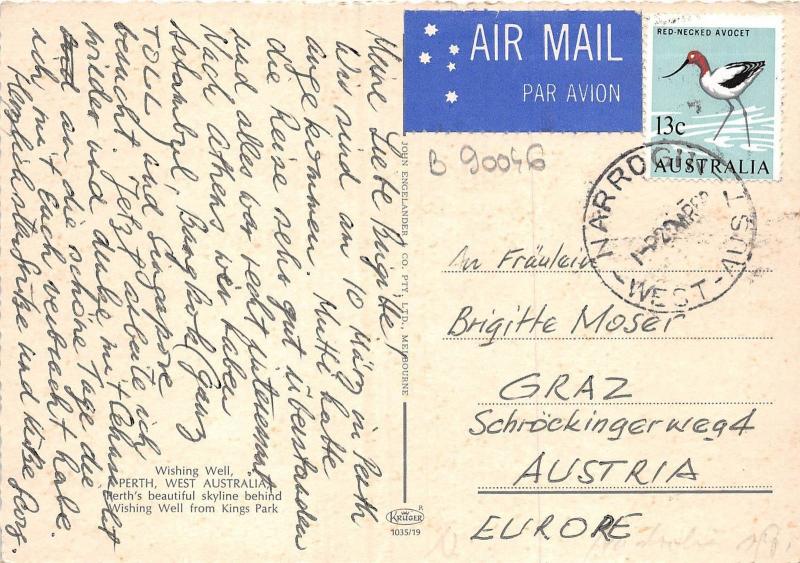 Meine Liebe Brigitte!
Wir sind am 10 März in Perth
angekommen. Mutti hatte
die Reise sehr gut überstanden
und alles war recht interessant
Nach Athens wir haben
Istambul, Bangkok (ganz
TOLL) und Singapore
besucht. Jetzt arbeite ich
wieder und denke mit Sehnsucht
an die schöne Tage die
ich mit Euch verbracht habe.
Herzlichste Grüsse und Küsse Georg.
Wishing Well,
PERTH, WEST AUSTRALIA,
Perth's beautiful skyline behind
Wishing Well from Kings Park
JOHN ENGELANDER CO. PTY. LTD., MELBOURNE
KRÜGER
R
1035/19
AIR MAIL
PAR AVION
RED-NECKED AVOCET
13c
AUSTRALIA
B 90046
NARROGIN
WEST-AUST
An Fräulein
Brigitte Moser
GRAZ
Schröckingerweg 4
AUSTRIA
EUROPE